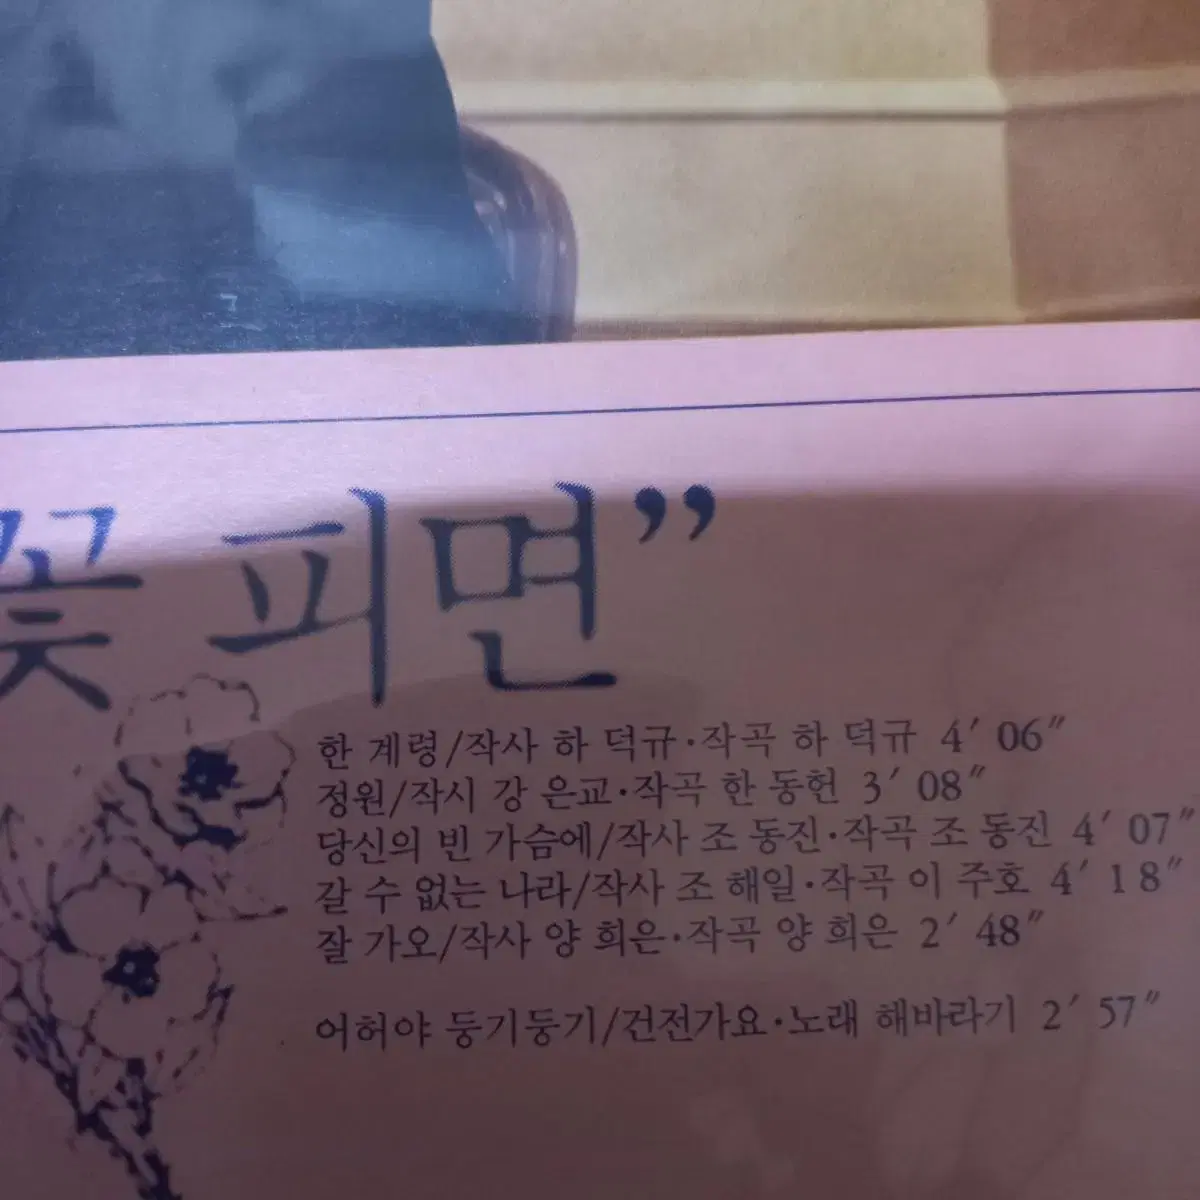 꽃 피면”
한 계령/작사 하 덕규·작곡 하 덕규 4′ 06″
정원/작시 강 은교·작곡 한 동헌 3′ 08″
당신의 빈 가슴에/작사 조 동진·작곡 조 동진 4′ 07″
갈 수 없는 나라/작사 조 해일·작곡 이 주호 4′ 18″
잘 가오/작사 양 희은·작곡 양 희은 2′ 48″
어허야 둥기둥기/건전가요·노래 해바라기 2′ 57″